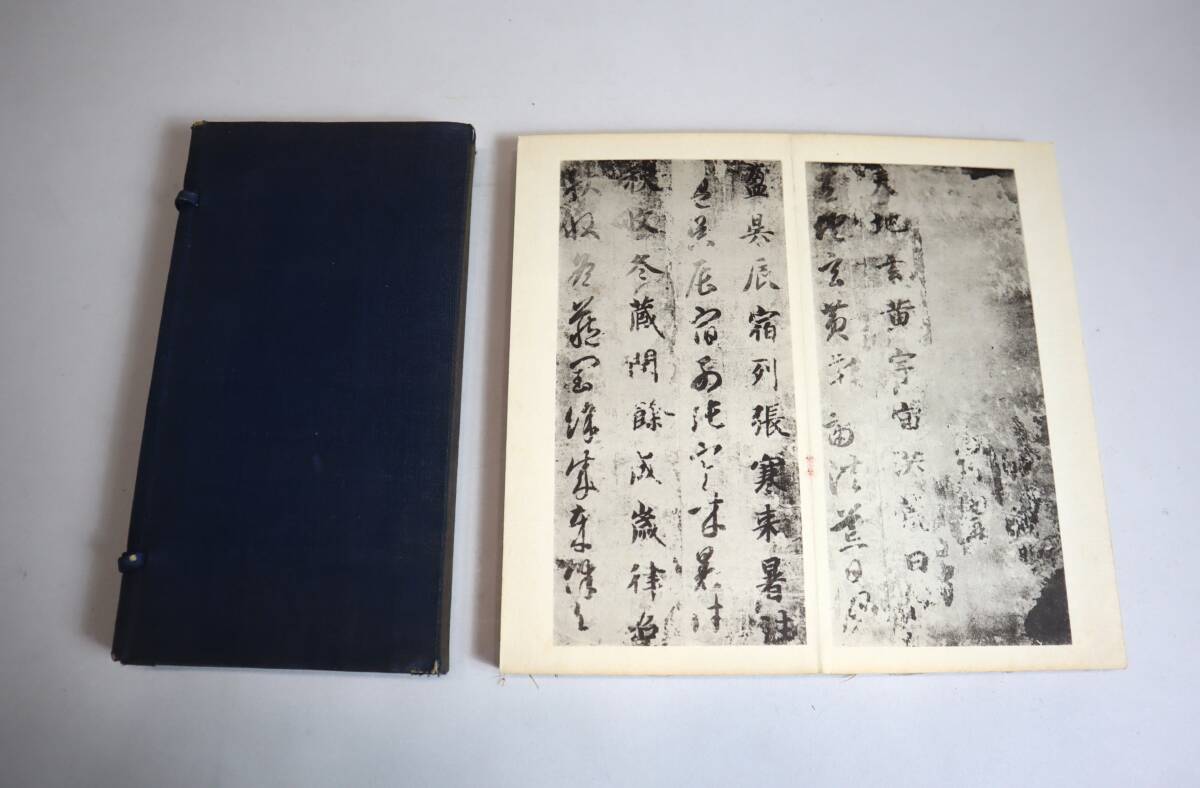 天地玄黄宇宙洪荒日月
天地玄黄宇宙洪荒日月
盈昃辰宿列張寒来暑往
盈昃辰宿列張寒来暑往
秋收冬蔵閏餘成歳律呂
秋收冬蔵閏餘成歳律呂